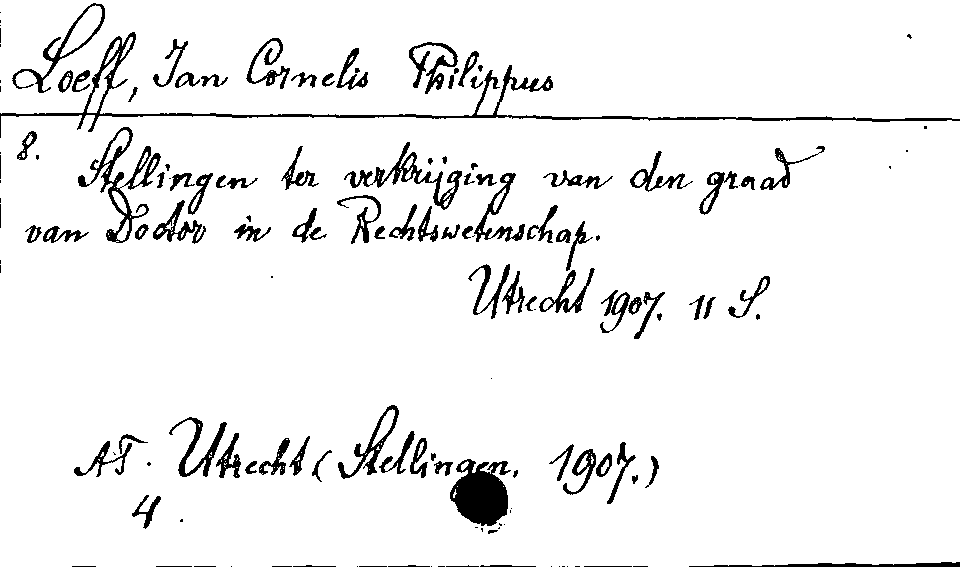 Loeff, Jan Cornelis Philippus
8. Stellingen ter verkrijging van den graad
van Doctor in de Rechtswetenschap.
Utrecht 1907. 11 S.
AT. Utrecht (Stellingen. 1907.)
4